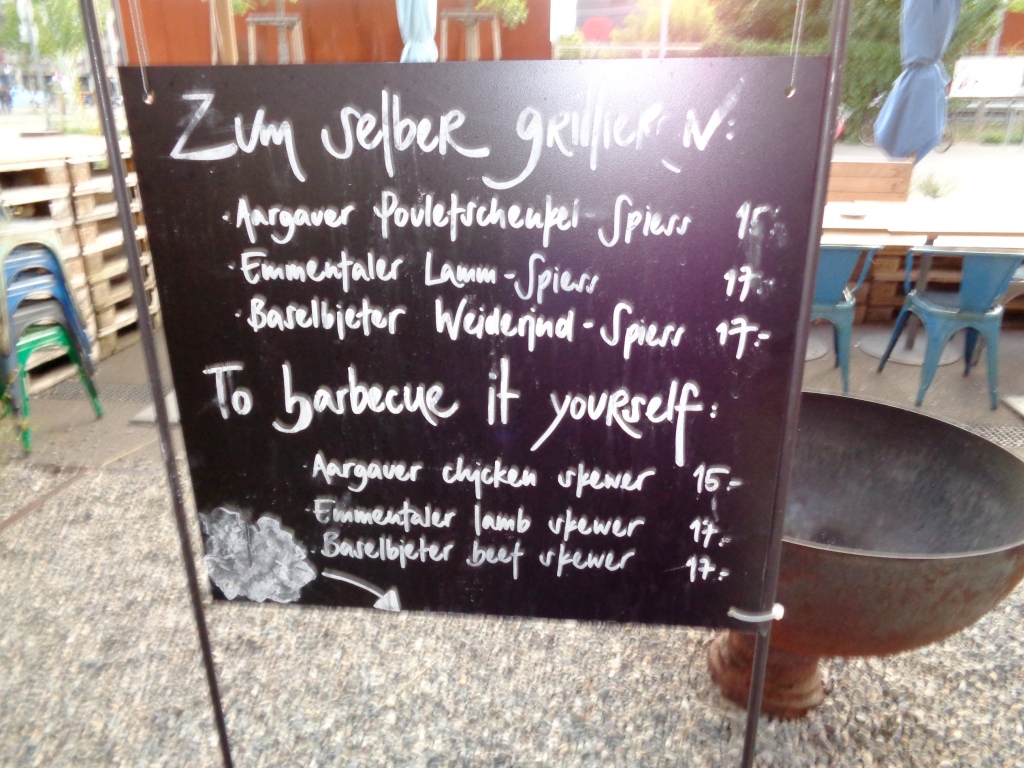 Zum selber grillieren:
· Aargauer Pouletschenkel-Spiess 15.-
· Emmentaler Lamm-Spiess 17.-
· Baselbieter Weiderind-Spiess 17.-
To barbecue it yourself:
· Aargauer chicken skewer 15.-
· Emmentaler lamb skewer 17.-
· Baselbieter beef skewer 17.-